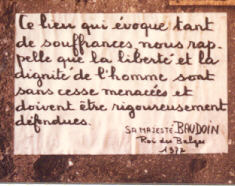 Ce lieu qui évoque tant
de souffrances, nous rap-
pelle que la liberté et la
dignité de l'homme sont
sans cesse menacées et
doivent être rigoureusement
défendues.
SA MAJESTÉ BAUDOIN
Roi des Belges
1977